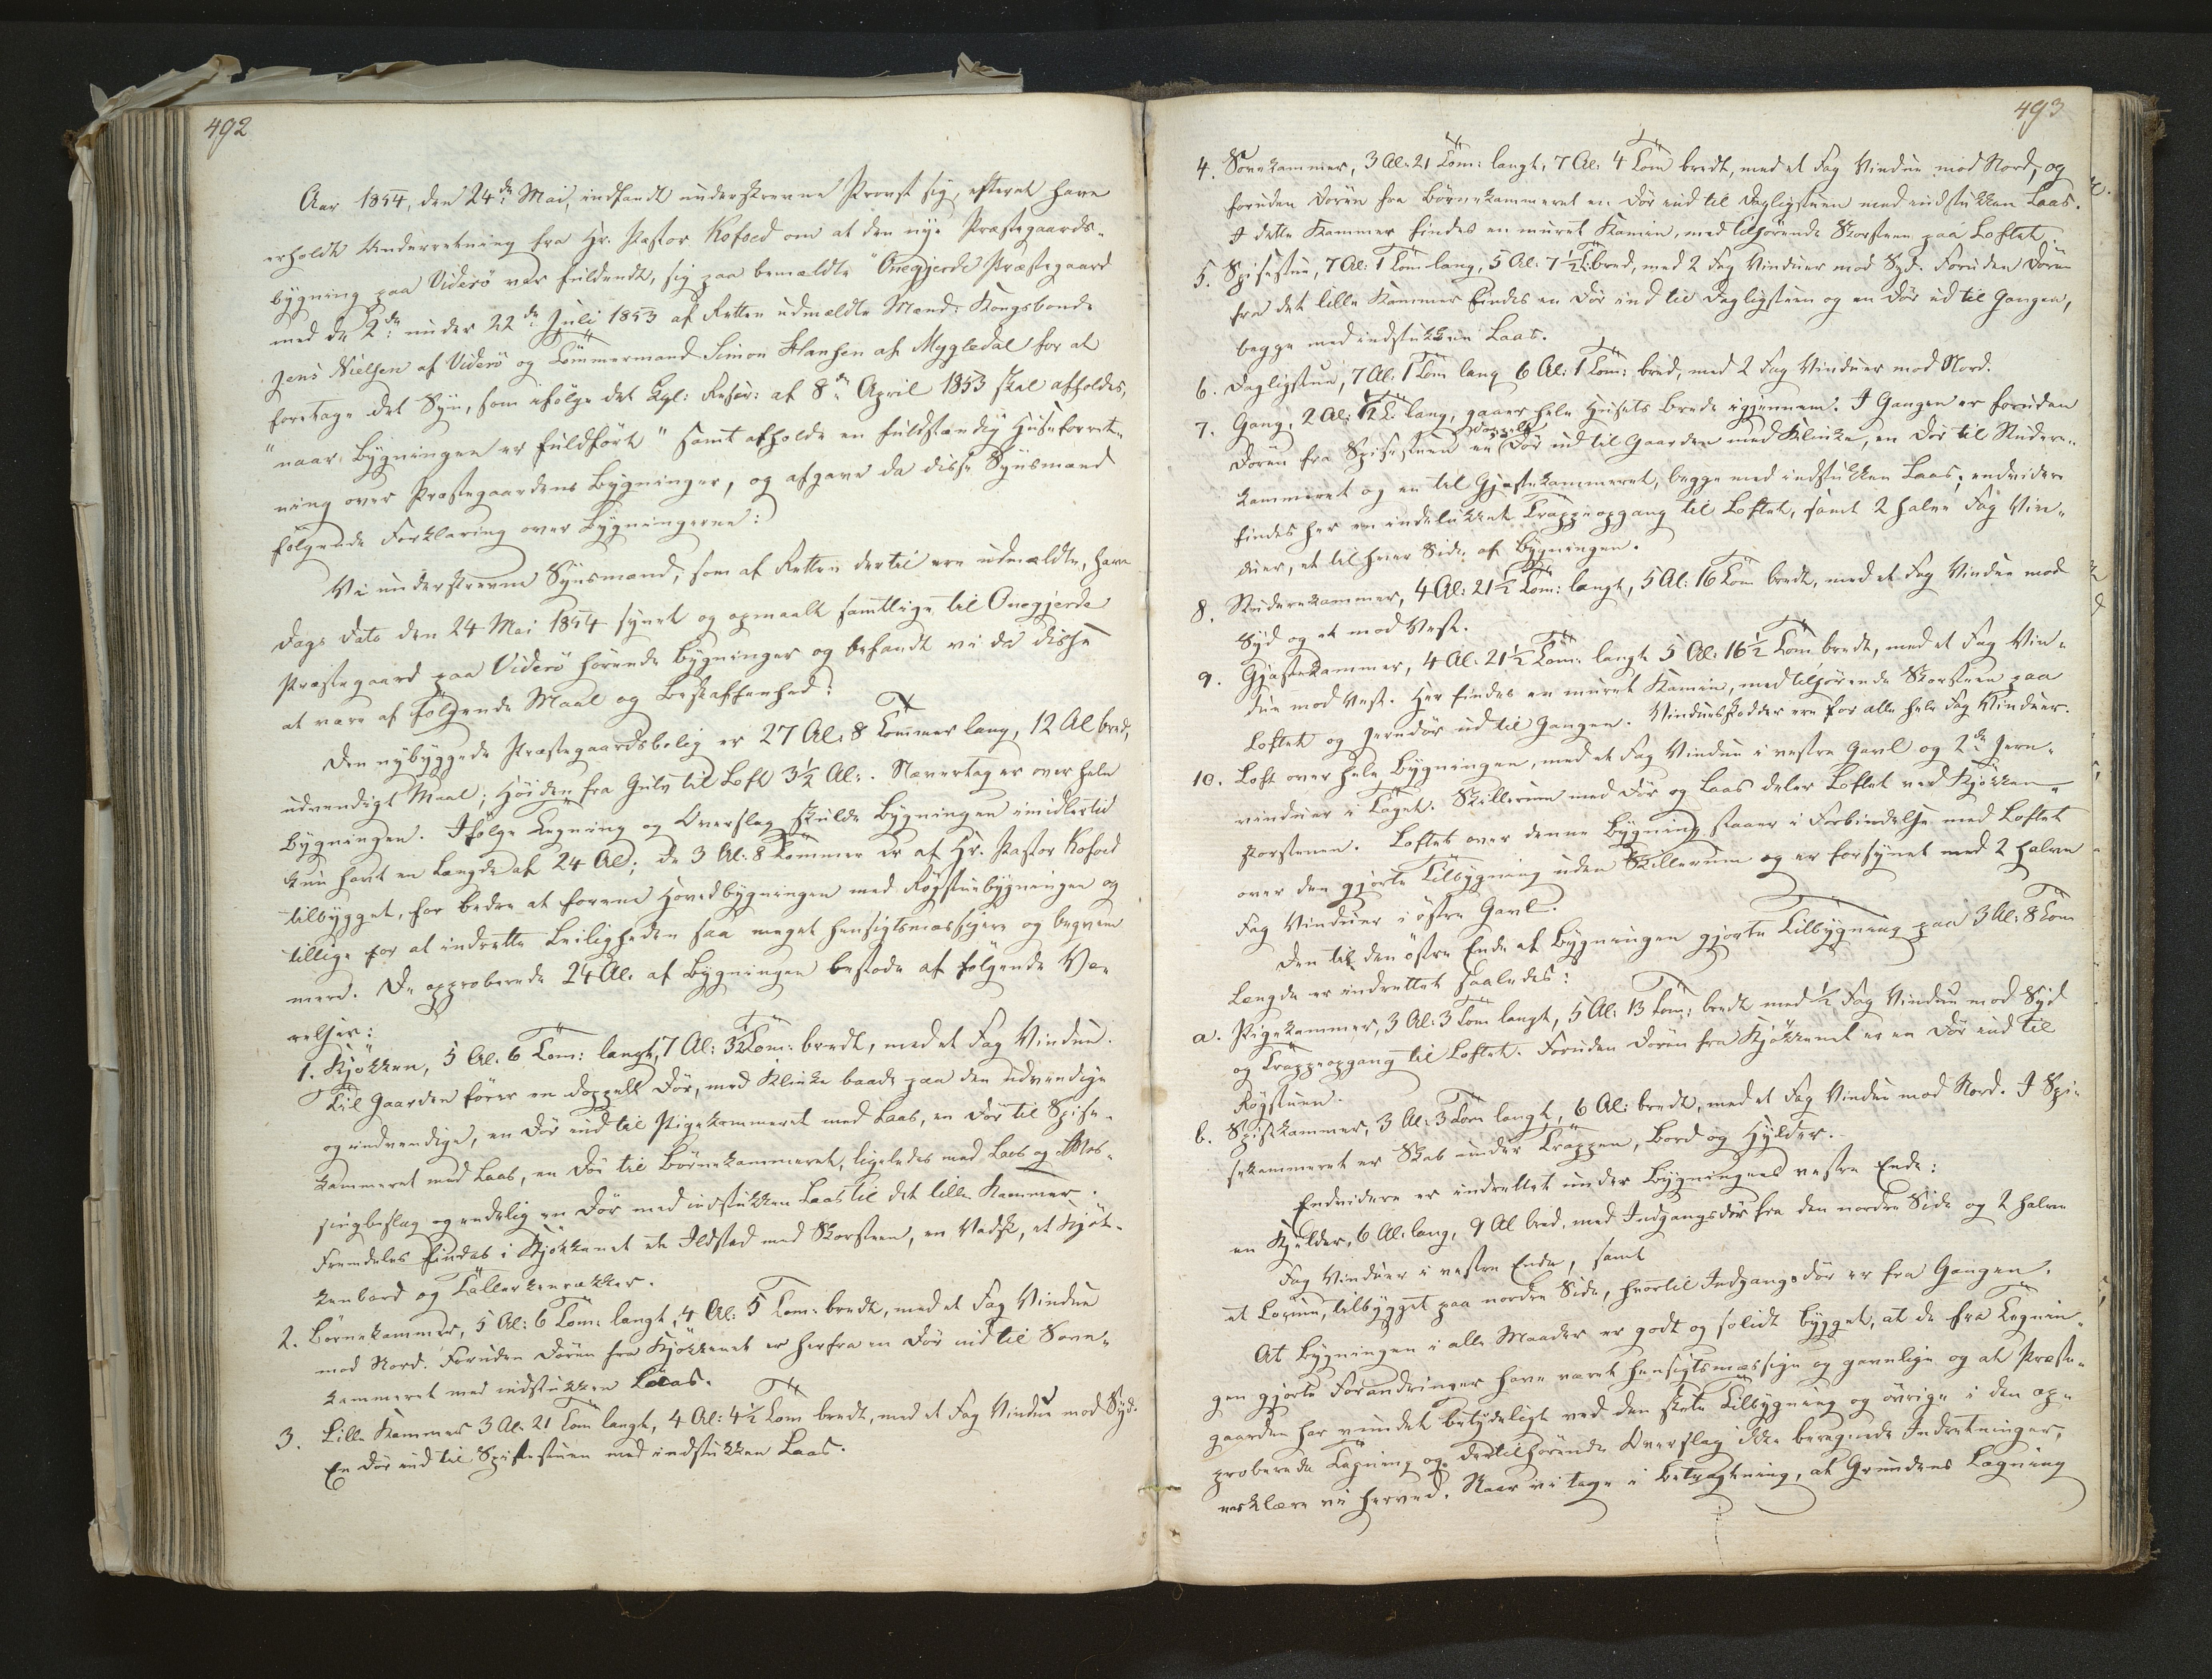 492
Aar 1854, den 24de Mai, indfandt underskrevne Provst sig, efterat have
erholdt Underretning fra Hr. Pastor Kofoed om at den nye Præstegaards-
bygning paa Viderö var fuldendt, sig paa bemældte "Önegjerde Præstegaard
med de 2de under 22de Juli 1853 af Retten udmeldte Mænd: Kongsbonde
Jens Nielsen af Viderö og Tömmermand Simon Hansen af Mygledal for at
foretage det Syn, som ifölge det Kgl: Rescr: af 8de April 1853 skal afholdes,
"naar Bygningen er fuldfört" samt afholde en fuldstændig Huusforret-
ning over Præstegaardens Bygninger, og afgave da disse Synsmænd
fölgende Forklaring over Bygningerne:
Vi underskrevne Synsmænd, som af Retten dertil ere udmeldte, have
Dags Dato den 24 Mai 1854 synet og opmaalt samtlige til Önegjerde
Præstegaard paa Viderö hörende Bygninger og befandt vi da disse
at være af fölgende Maal og Beskaffenhed:
Den nybyggede Præstegaardsbolig er 27 Al: 8 Tommer lang, 12 Al bred,
udvendigt Maal; Höiden fra Gulv til Loft 3½ Al:. Nævertag er over hele
Bygningen. Ifölge Tegning og Overslag skulde Bygningen imidlertid
kun havt en Længde af 24 Al; de 3 Al: 8 Tommer er af Hr. Pastor Kofoed
tilbygget, for bedre at forene Hovedbygningen med Rögstuebygningen og
tillige for at indrette Leiligheden saa meget hensigtsmæssigere og beqvem
mere. De approberede 24 Al. af Bygningen bestode af fölgende Væ-
relser:
1. Kjökken, 5 Al. 6 Tom: langt, 7 Al: 3½ Tom: bredt, med et Fag Vindue.
Til Gaarden förer en doppelt Dör, med Klinke baade paa den udvendige
og indvendige, en Dör ind til Pigekammeret med Laas, en Dör til Spise-
kammeret med Laas, en Dör til Börnekammeret, ligeledes med Laas og Mes-
singbeslag og endelig en Dör med indstukken Laas til det lille Kammer.
Fremdeles findes i Kjökkenet et Ildsted med Skorsteen, en Vadsk, et Kjök-
kenbord og Tallerkenrækker.
2. Börnekammer, 5 Al: 6 Tom: langt, 4 Al: 5 Tom: bredt, med et Fag Vindue
mod Nord. Foruden Dören fra Kjökkenet er herfra en Dör ind til Sove-
kammeret med indstukken Laas.
3. Lille Kammer 3 Al. 21 Tom langt, 4 Al: 4½ Tom bredt, med et Fag Vindue mod Syd.
En Dör ind til Spisestuen med indstukken Laas.
493
4. Sovekammer, 3 Al: 21 Tom: langt, 7 Al: 4 Tom bredt, med et Fag Vindue mod Nord, og
foruden Dören fra Börnekammeret en Dör ind til Dagligstuen med indstukken Laas.
I dette Kammer findes en muret Kamin, med tilhörende Skorsteen paa Loftet.
5. Spisestue, 7 Al: 1 Tom lang, 5 Al: 7½ T: bred, med 2 Fag Vinduer mod Syd. Foruden Dören
fra det lille Kammer findes en Dör ind til Dagligstuen og en Dör ud til Gangen,
begge med indstukken Laas.
6. Dagligstue, 7 Al: 1 Tom lang 6 Al: 1 Tom: bred, med 2 Fag Vinduer mod Nord.
7. Gang, 2 Al: ½ T: lang, gaaer hele Husets Brede igjennem. I Gangen er foruden
Dören fra Spisestuen en doppelt Dör ud til Gaarden med Klinke, en Dör til Studere-
kammeret og en til Gjæstekammeret, begge med indstukken Laas; endvidere
findes her en indelukket Trappeopgang til Loftet, samt 2 halve Fag Vin-
duer, et til hver Side af Bygningen.
8. Studerekammer, 4 Al: 21½ Tom: langt, 5 Al: 16 Tom bredt, med et Fag Vindue mod
Syd og et mod Vest.
9. Gjæstekammer, 4 Al: 21½ Tom: langt 5 Al: 16½ Tom bredt, med et Fag Vin-
due mod Vest. Her findes en muret Kamin, med tilhörende Skorsteen paa
Loftet og Jerndör ud til Gangen. Vinduesskodder ere for alle hele Fag Vinduer.
10. Loft over hele Bygningen, med et Fag Vindue i vestre Gavl og 2de Jern-
vinduer i Taget. Skillerum med Dör og Laas deler Loftet ved Kjökken-
skorstenen. Loftet over denne Bygning staaer i Forbindelse med Loftet
over den gjorte Tilbygning uden Skillerum og er forsynet med 2 halve
Fag Vinduer i östre Gavl.
Den til den östre Ende af Bygningen gjorte Tilbygning paa 3 Al: 8 Tom
Længde er indrettet saaledes:
a. Pigekammer, 3 Al: 3 Tom langt, 5 Al: 13 Tom: bredt med ½ Fag Vindue mod Syd
og Trappeopgang til Loftet. Foruden Dören fra Kjökkenet er en Dör ind til
Rögstuen.
b. Spisekammer, 3 Al. 3 Tom langt, 6 Al: bredt, med et Fag Vindue mod Nord. I Spi-
sekammeret er Skab under Trappen, Bord og Hylder.
Endvidere er indrettet under Bygningens vestre Ende:
en Kjelder, 6 Al. lang, 9 Al bred, med Indgangsdör fra den nordre Side og 2 halve
Fag Vinduer i vestre Ende, samt
et Locum, tilbygget paa nordre Side, hvortil Indgangsdör er fra Gangen.
At Bygningen i alle Maader er godt og solidt bygget, at de fra Tegnin-
gen gjorte Forandringer have været hensigtsmæssige og gavnlige og at Præste-
gaarden har vundet betydeligt ved den skete Tilbygning og övrige i den ap-
proberede Tegning og dertilhörende Overslag ikke beregnede Indretninger,
erklære vi herved. Naar vi tage i Betragtning, at Grundens Lægning